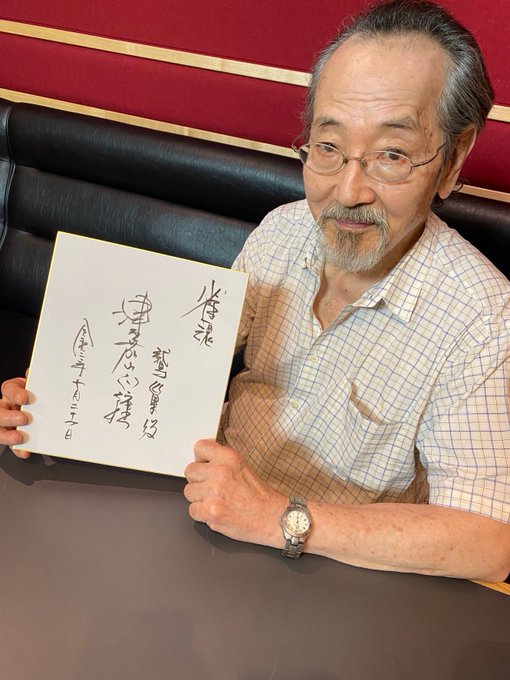 雀魂
鷲巣 役
津嘉山正種
令和三年十月